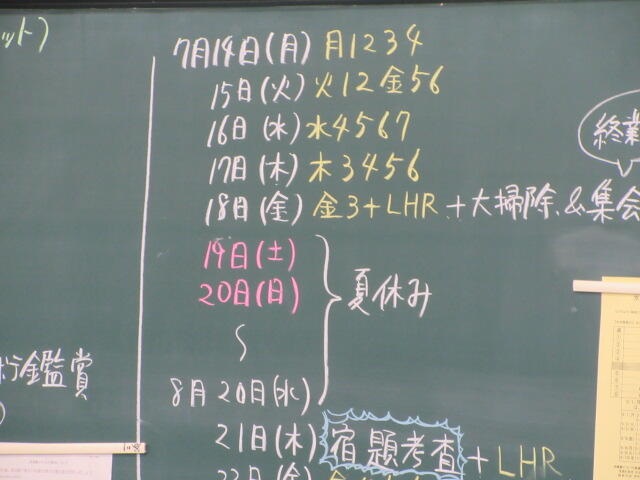 ット)
7月14日(月) 月1234
15日(火) 火12金56
16日(水) 水4567
17日(木) 木3456
終業
18日(金) 金3+LHR +大掃除&集会
19日(土)
20日(日)
夏休み
〜
行鑑賞
)
8月20日(水)
21日(木) 宿題考査 +LHR
22日(金)